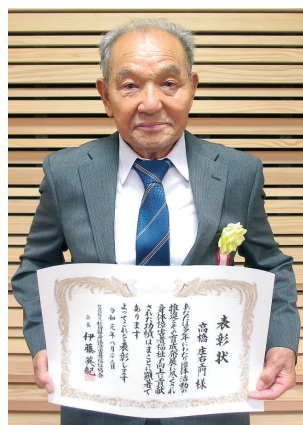 表彰状
高橋 庄右エ門 様
あなたは多年にわたり団体活動の
推進とその育成発展に尽くされ
身体障害者福祉の向上に貢献
された功績はまことに顕著で
あります
よってこれを表彰します
令和元年八月
会長 伊藤英紀